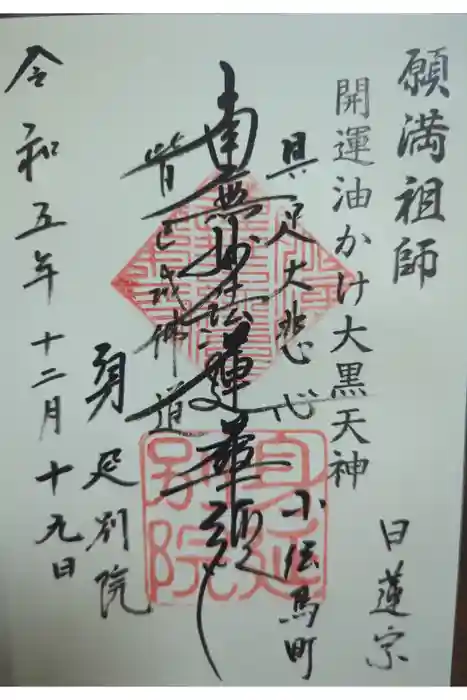 願満祖師
開運油かけ大黒天神
日蓮宗
小伝馬町
具足大悲心
南無妙法蓮華経
皆已成佛道
身延別院
身延
別院
令和五年十二月十九日